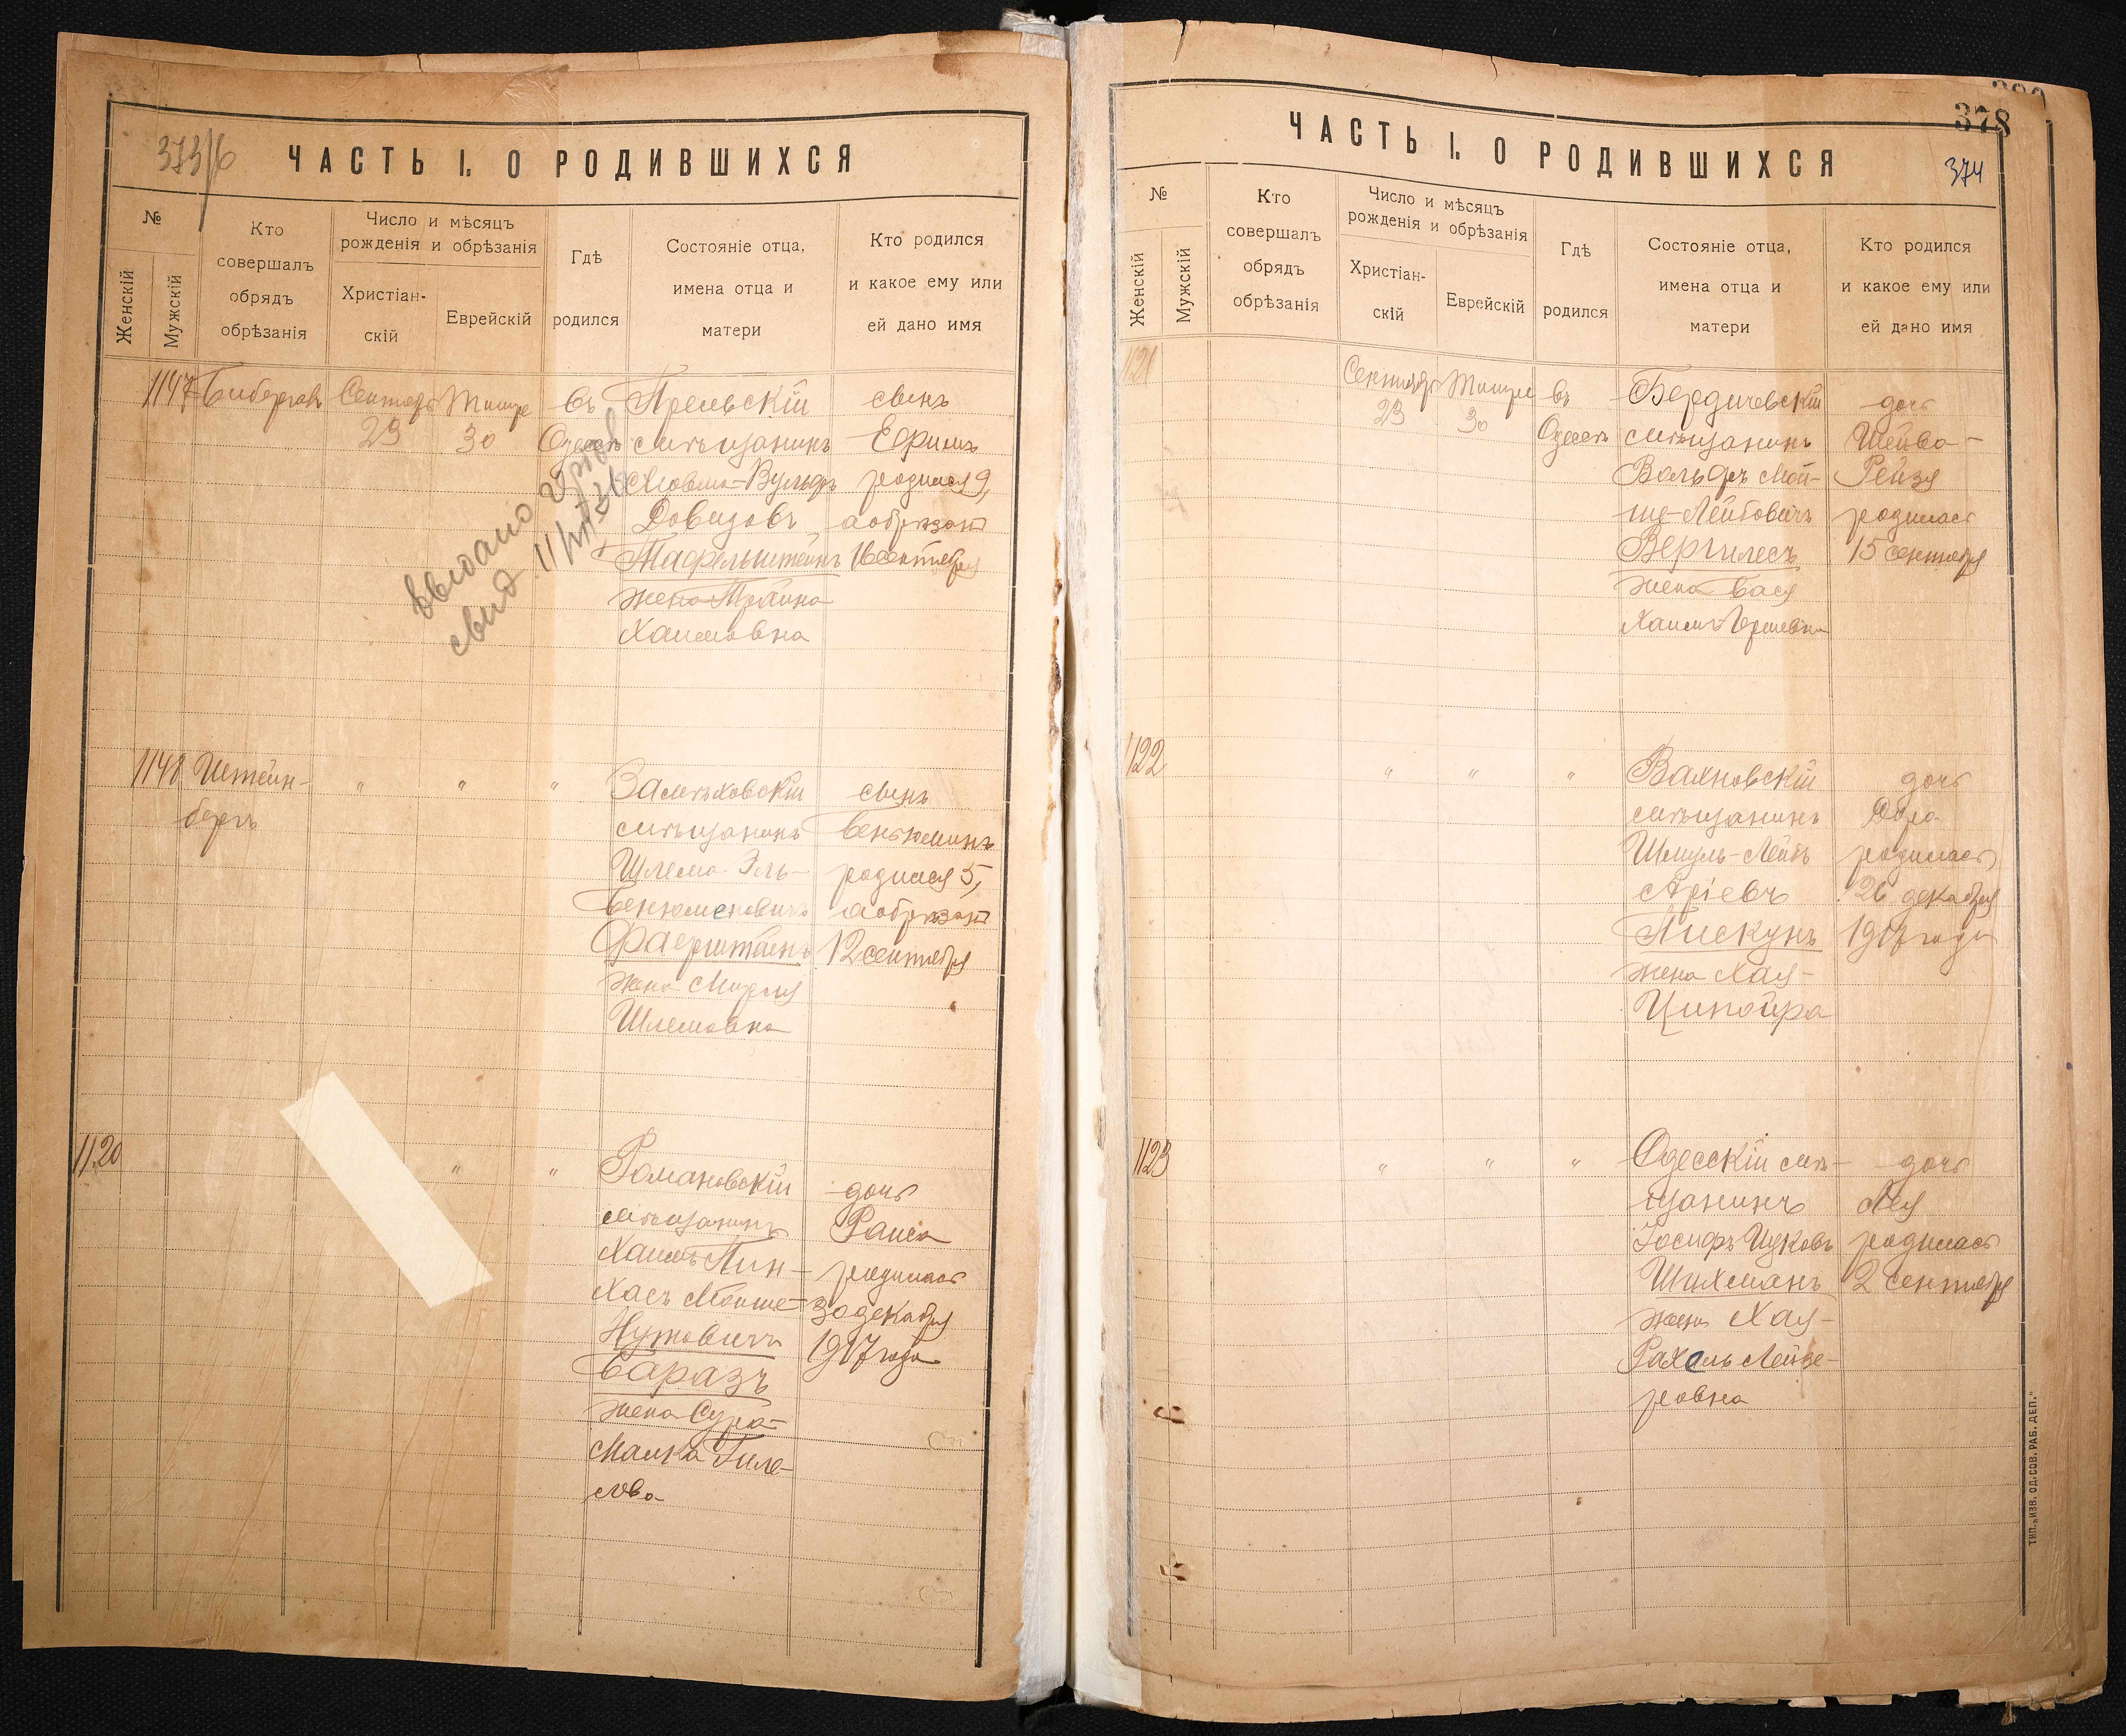 373/6
ЧАСТЬ I. О РОДИВШИХСЯ
№
Женскій
Мужскій
Кто
совершалъ
обрядъ
обрѣзанія
Число и мѣсяцъ
рожденія и обрѣзанія
Христіан-
скій
Еврейскій
Гдѣ
родился
Состояніе отца,
имена отца и
матери
Кто родился
и какое ему или
ей дано имя
1147 Сентябр Тишре въ мѣщанинъ сынъ
23 30 Одессѣ Ефимъ
Вульфъ родился 9,
Довидовъ а обрѣзанъ
Тафельштейнъ 16 сентября
жена
Хаимовна
выдано
свид.
1148 Штейн- " " " сынъ
бергъ мѣщанинъ Беньюминъ
Шлема Эль- родился 5,
Бенюминовичъ а обрѣзанъ
Фаерштейнъ 12 сентября
жена
Шлемовна
1120 " " Романовскій дочь
мѣщанинъ Раиса
Хаимъ Пин- родилась
хасъ Мойше- 30 декабря
Нутовичъ 1917 года
Баразъ
жена Сура-
Малка Гиле-
лова
378
374
ЧАСТЬ I. О РОДИВШИХСЯ
№
Женскій
Мужскій
Кто
совершалъ
обрядъ
обрѣзанія
Число и мѣсяцъ
рожденія и обрѣзанія
Христіан-
скій
Еврейскій
Гдѣ
родился
Состояніе отца,
имена отца и
матери
Кто родился
и какое ему или
ей дано имя
1121 Сентябр Тишре въ Бердичевскій дочь
23 30 Одессѣ мѣщанинъ Шейва-
Вольфъ Мой- Рейзя
ше-Лейбовичъ родилась
Вергилесъ 15 сентября
жена Бася
Хаимъ-Гершевна
1122 " " " Вахновскій дочь
мѣщанинъ Дора
Шмуль-Лейбъ родилась
Аріевъ 26 декабря
Пискунъ 1917 года
жена Хая-
Ципойра
1123 " " " Одесскій мѣ- дочь
щанинъ Лея
Іосифъ Ицковъ родилась
Шихманъ 2 сентября
жена Хая-
Рахель Лейзе-
ровна
ТИП. „ИЗВ. ОД. СОВ. РАБ. ДЕП."